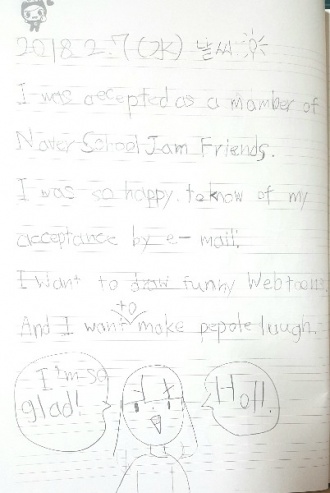 2018.2.7 (水) 날씨
I was accepted as a mamber of
Naver School Jam Friends.
I was so happy. to know of my
acceptance by e-mail.
I want to draw funny Webtoons.
And I want to make pepole luugh.
I'm so
glad!